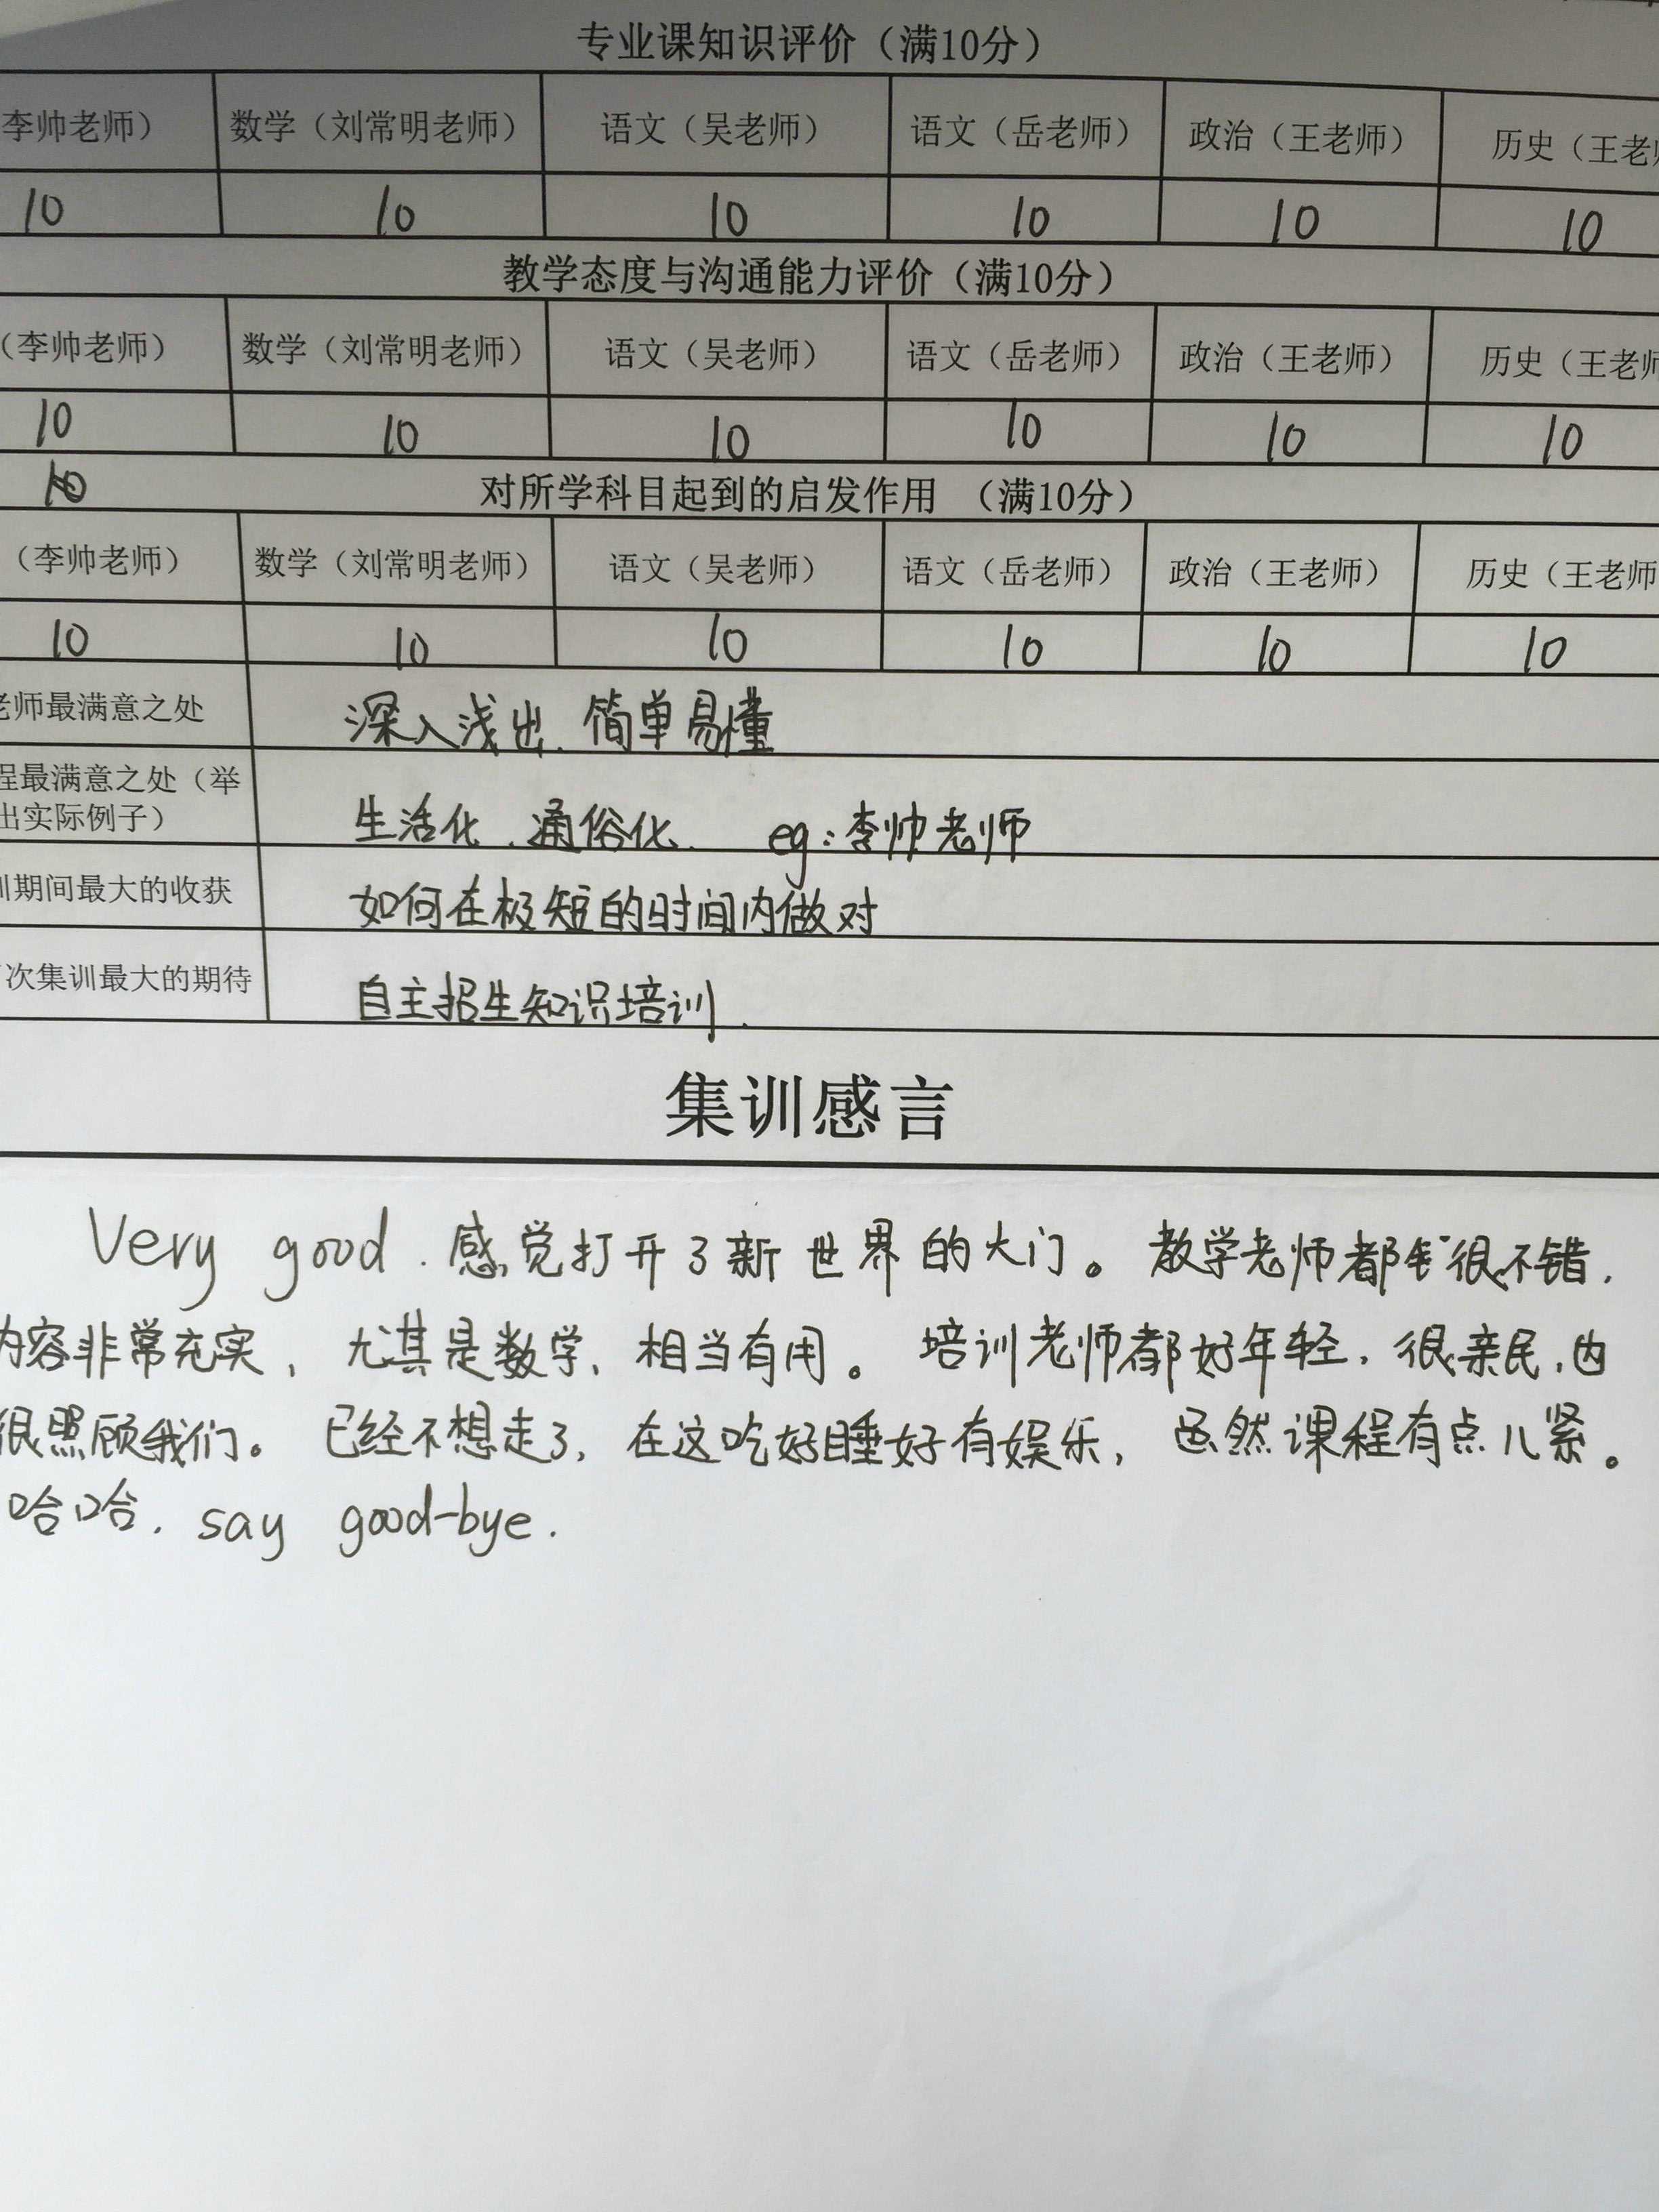 专业课知识评价（满10分）
李帅老师） 数学（刘常明老师） 语文（吴老师） 语文（岳老师） 政治（王老师） 历史（王老师
10 10 10 10 10 10
教学态度与沟通能力评价（满10分）
（李帅老师） 数学（刘常明老师） 语文（吴老师） 语文（岳老师） 政治（王老师） 历史（王老师
10 10 10 10 10 10
对所学科目起到的启发作用 （满10分）
（李帅老师） 数学（刘常明老师） 语文（吴老师） 语文（岳老师） 政治（王老师） 历史（王老师
10 10 10 10 10 10
老师最满意之处 深入浅出、简单易懂
程最满意之处（举
出实际例子） 生活化、通俗化、 eg：李帅老师
训期间最大的收获 如何在极短的时间内做对
次集训最大的期待 自主招生知识培训.
集训感言
Very good. 感觉打开了新世界的大门。教学老师都很不错，
内容非常充实，尤其是数学，相当有用。培训老师都好年轻，很亲民，也
很照顾我们。已经不想走了，在这吃好睡好有娱乐，虽然课程有点儿紧。
哈哈. say good-bye.